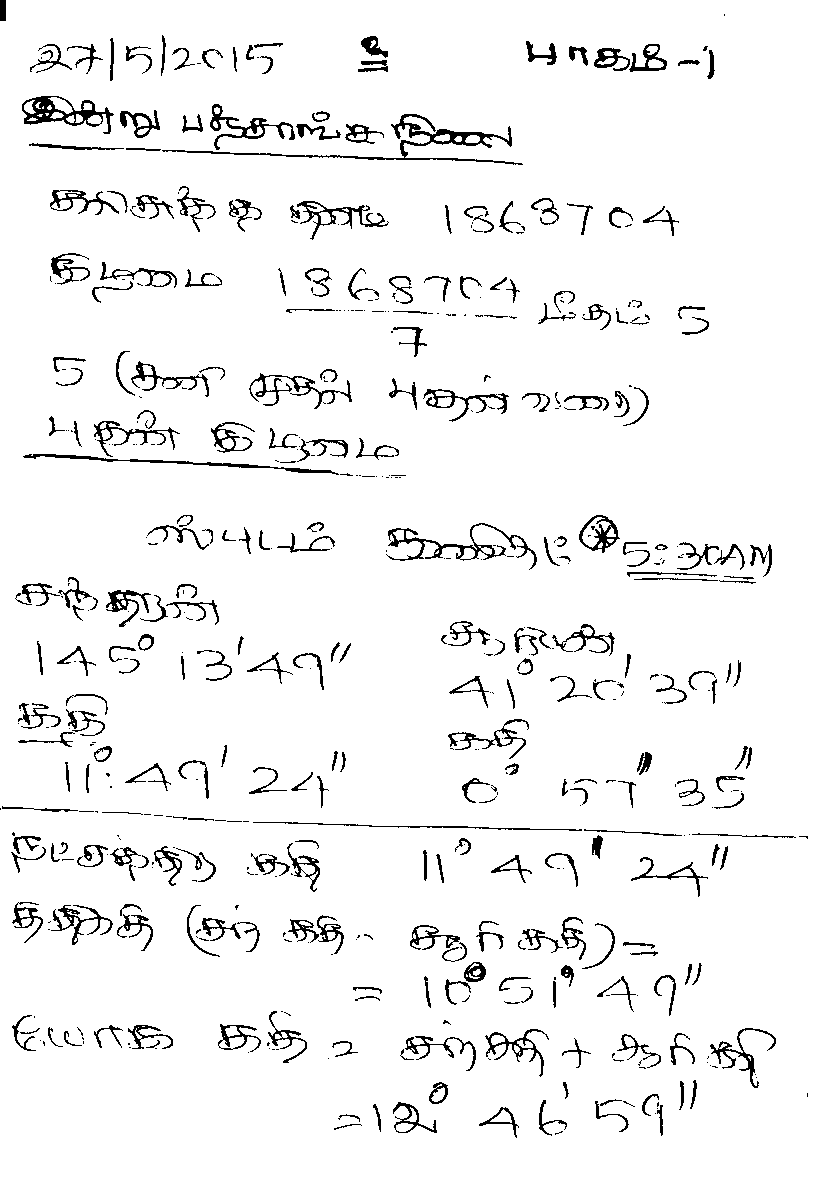 27/5/2015 உ பாகம் -1
இன்று பஞ்சாங்க நிலை
கலிசுத்த தினம் 1868704
கிழமை 1868704/7 மீதம் 5
5 (சனி முதல் புதன் வரை)
புதன் கிழமை
ஸ்புடம் கணிதம் * 5:30AM
சந்திரன் சூரியன்
145° 13' 49" 41° 20' 39"
கதி கதி
11°: 49' 24" 0° 57' 35"
நட்சத்திர கதி 11° 49' 24"
திதிகதி (சந் கதி - சூரி கதி) =
= 10° 51' 49"
யோக கதி = சந் கதி + சூரி கதி
= 12° 46' 59"